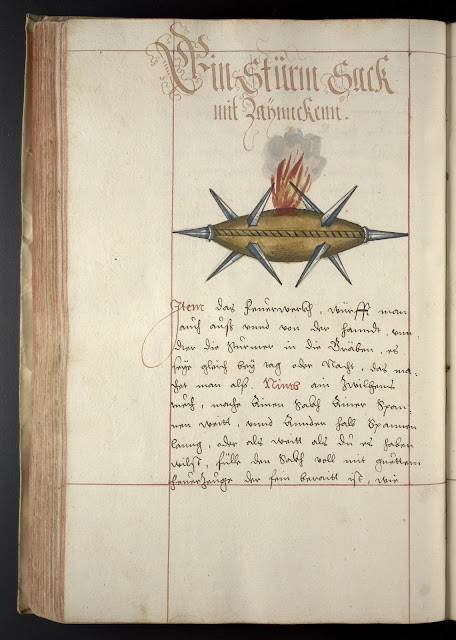 Ein Stürm Sack
mit Zaynnckenn.
Item das Feuerwerch, würfft man
auch auß vnnd von der hanndt, vnn
der die Stürmer in die Gräben, es
seye gleich bey tag oder Nacht, das ma-
chet man also. Nimb ain Zwilhens
tuech, mache Einen Sackh Einer Span-
nen weitt, vnnd Annder halb Spannen
lanng, oder als weitt als dü es haben
wilst, fülle den Sackh voll mit guettem
feuerzeuge der fein beraitt ist, wie